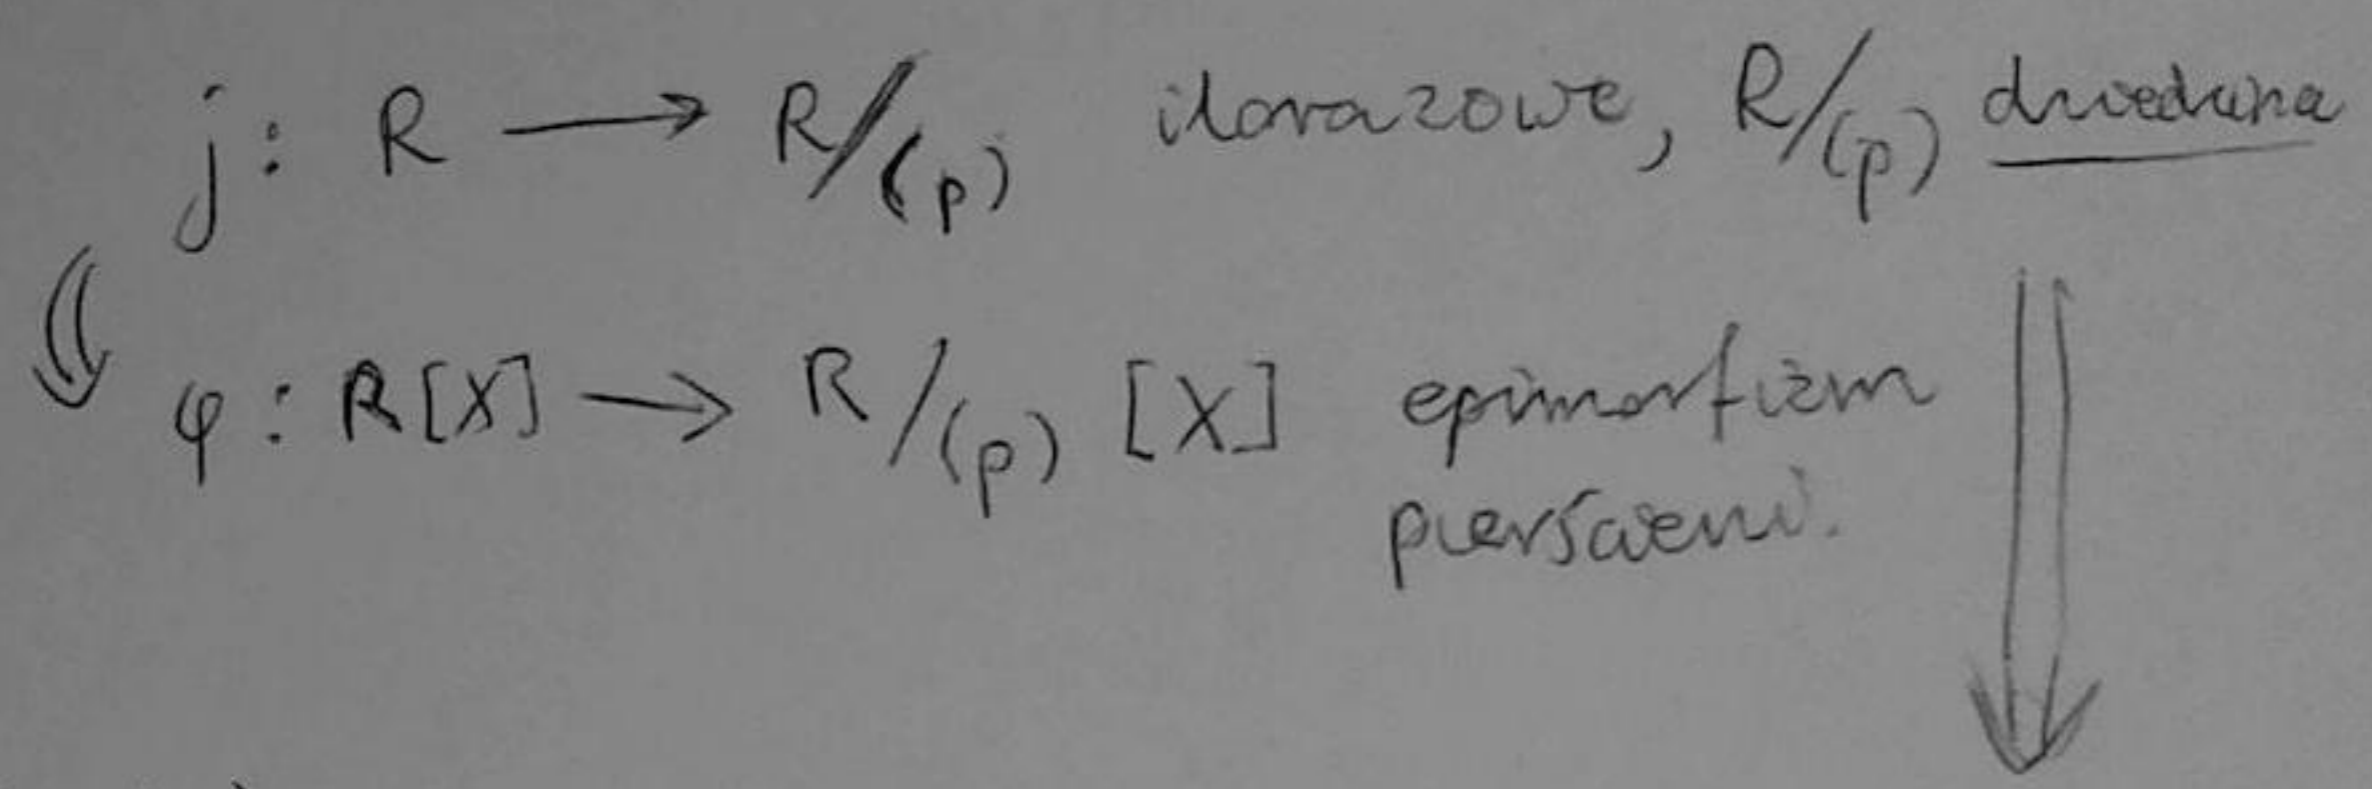 j: R ⟶ R/(p) ilorazowe, R/(p) dziedzina
⇓
φ: R[X] ⟶ R/(p) [X] epimorfizm
pierścieni.
⇓